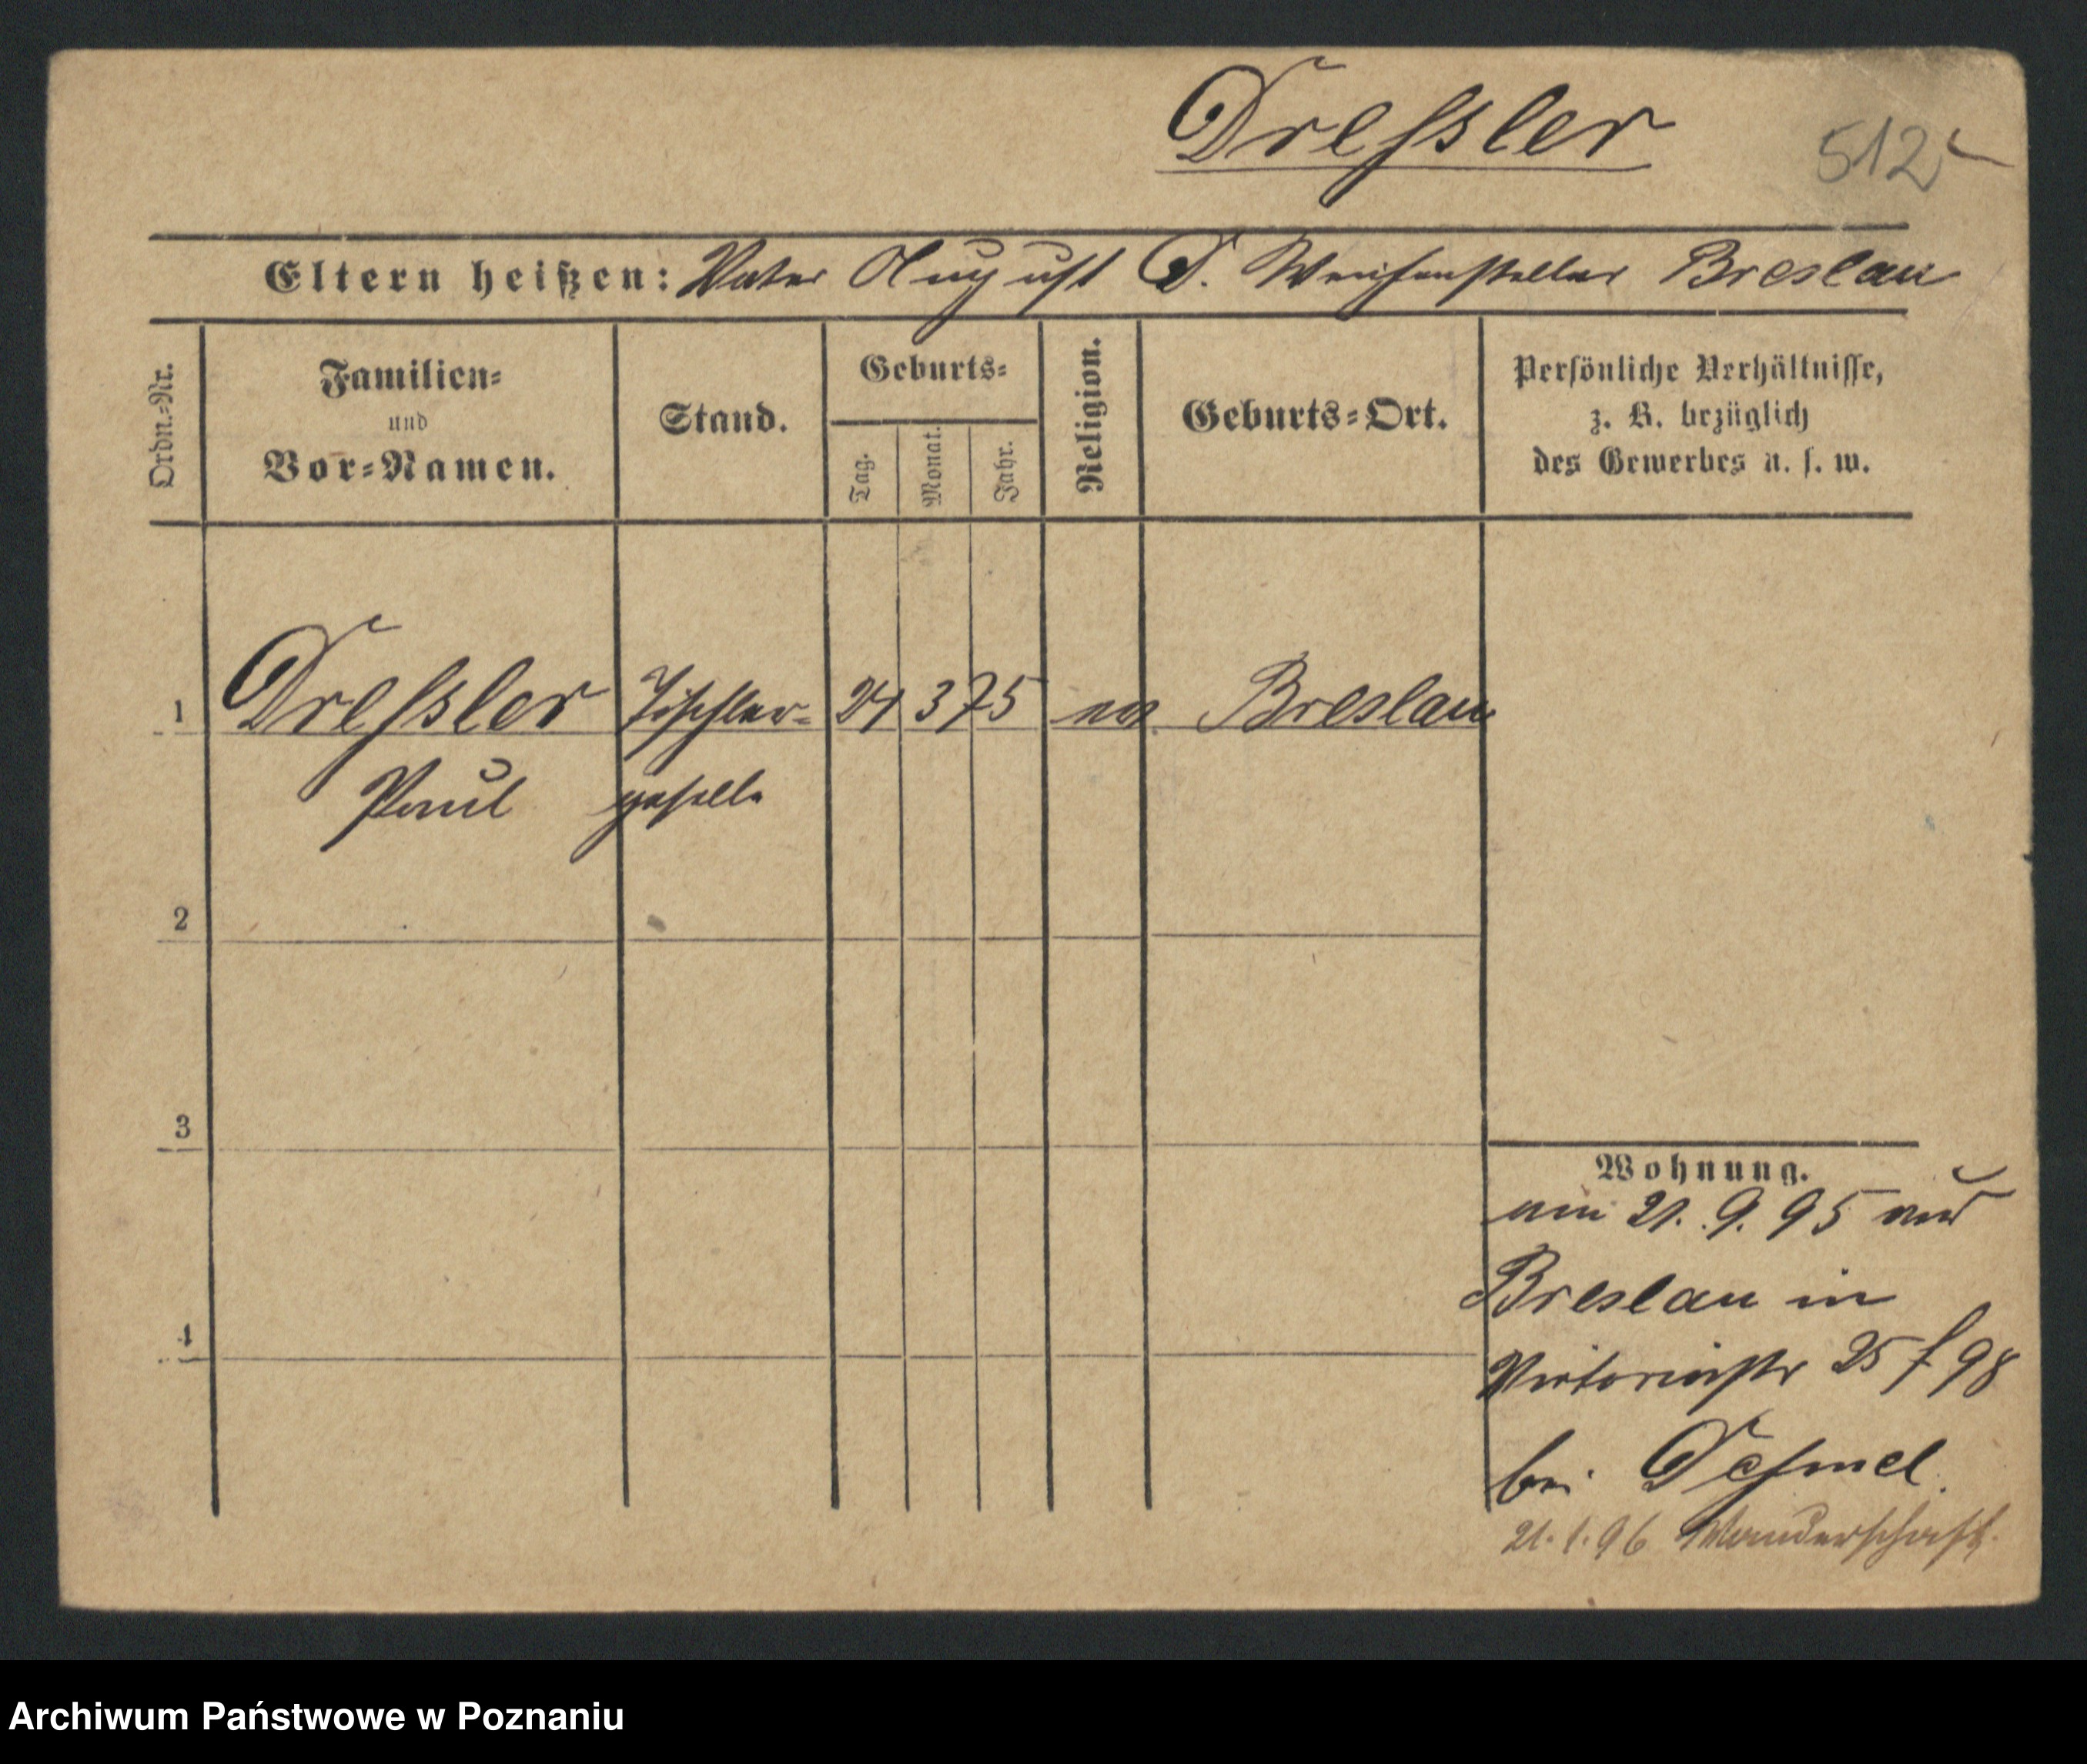 Dressler 512
Eltern heißen: Vater August D. Weichensteller Breslau
Ordn.-Nr.
Familien-
und
Vor-Namen.
Stand.
Geburts-
Tag.
Monat.
Jahr.
Religion.
Geburts-Ort.
Persönliche Verhältnisse,
z. B. bezüglich
des Gewerbes u. s. w.
1 Dressler Tischler- 24 3 75 ev Breslau
Paul geselle
2
3
4
Wohnung.
am 21. 9. 95 aus
Breslau in
Victoriastr 25 f 98
bei Dehmel.
21.1.96 Wanderschaft.
Archiwum Państwowe w Poznaniu